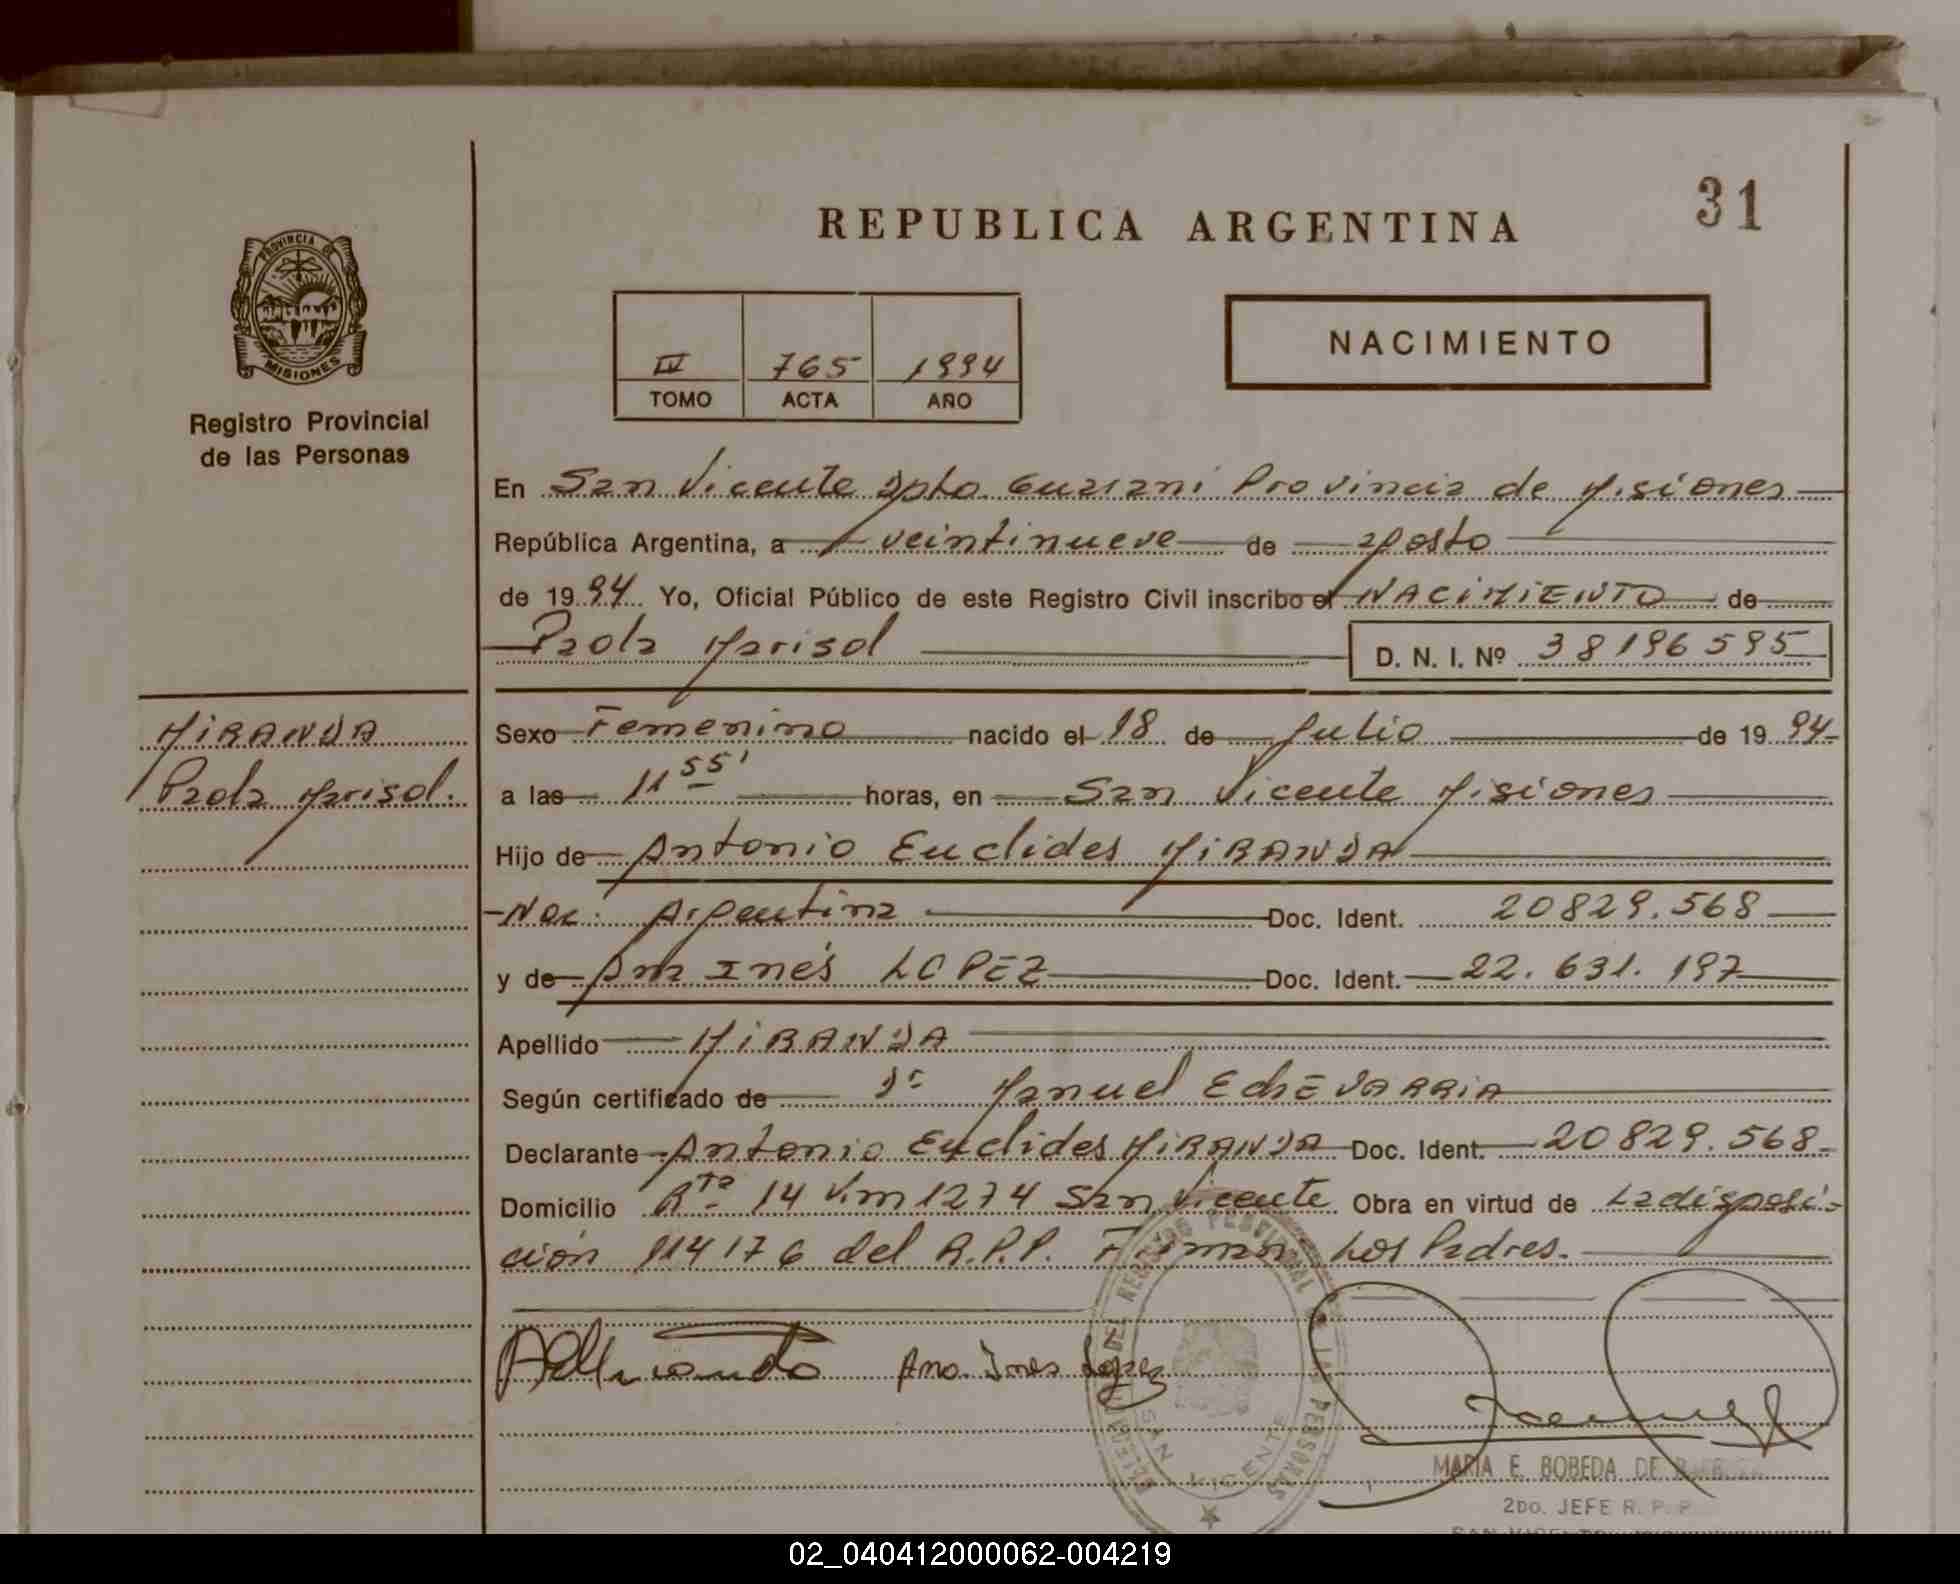 31
REPUBLICA ARGENTINA
PROVINCIA DE
MISIONES
Registro Provincial
de las Personas
NACIMIENTO
IV 765 1994
TOMO ACTA AÑO
En San Vicente Dpto Guarani Provincia de Misiones
República Argentina, a veintinueve de agosto
de 1994 Yo, Oficial Público de este Registro Civil inscribo el NACIMIENTO de
Paola Marisol D. N. I. Nº 38196595
MIRANDA
Paola Marisol.
Sexo Femenino nacido el 18 de Julio de 1994
a las 11 55' horas, en San Vicente Misiones
Hijo de Antonio Euclides MIRANDA
Nac. Argentina Doc. Ident. 20829.568
y de Ana Inés LOPEZ Doc. Ident. 22.631.197
Apellido MIRANDA
Según certificado de Dr Manuel EchEVARRIA
Declarante Antonio Euclides MIRANDA Doc. Ident. 20829.568
Domicilio Rta 14 Km 1274 San Vicente Obra en virtud de La disposi-
ción 114176 del R.P.P. Firman Los Padres.
Ana Ines Lopez
REGISTRO PROVINCIAL DE LAS PERSONAS
SAN VICENTE
MARIA E. BOBEDA DE
2DO. JEFE R. P. P.
SAN VICENTE
02_040412000062-004219